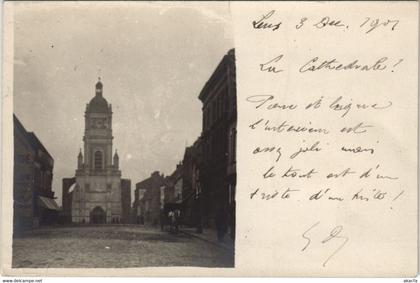 Lens 3 Dec. 1901
La Cathédrale!
l'intérieur est
assez joli mais
le tout est d'un
triste.. d'un triste!
www.delcampe.net